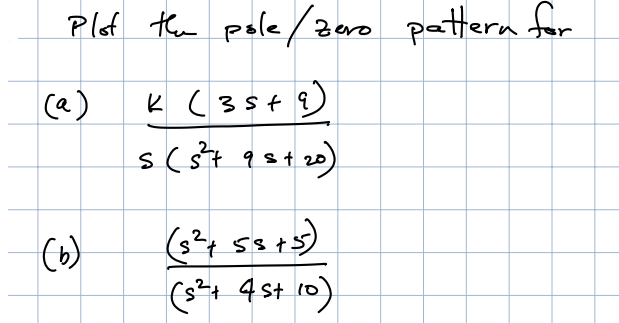 Plot the pole/zero pattern for
(a) K (3s + 9)
s (s² + 9s + 20)
(b) (s² + 5s + 5)
(s² + 4s + 10)